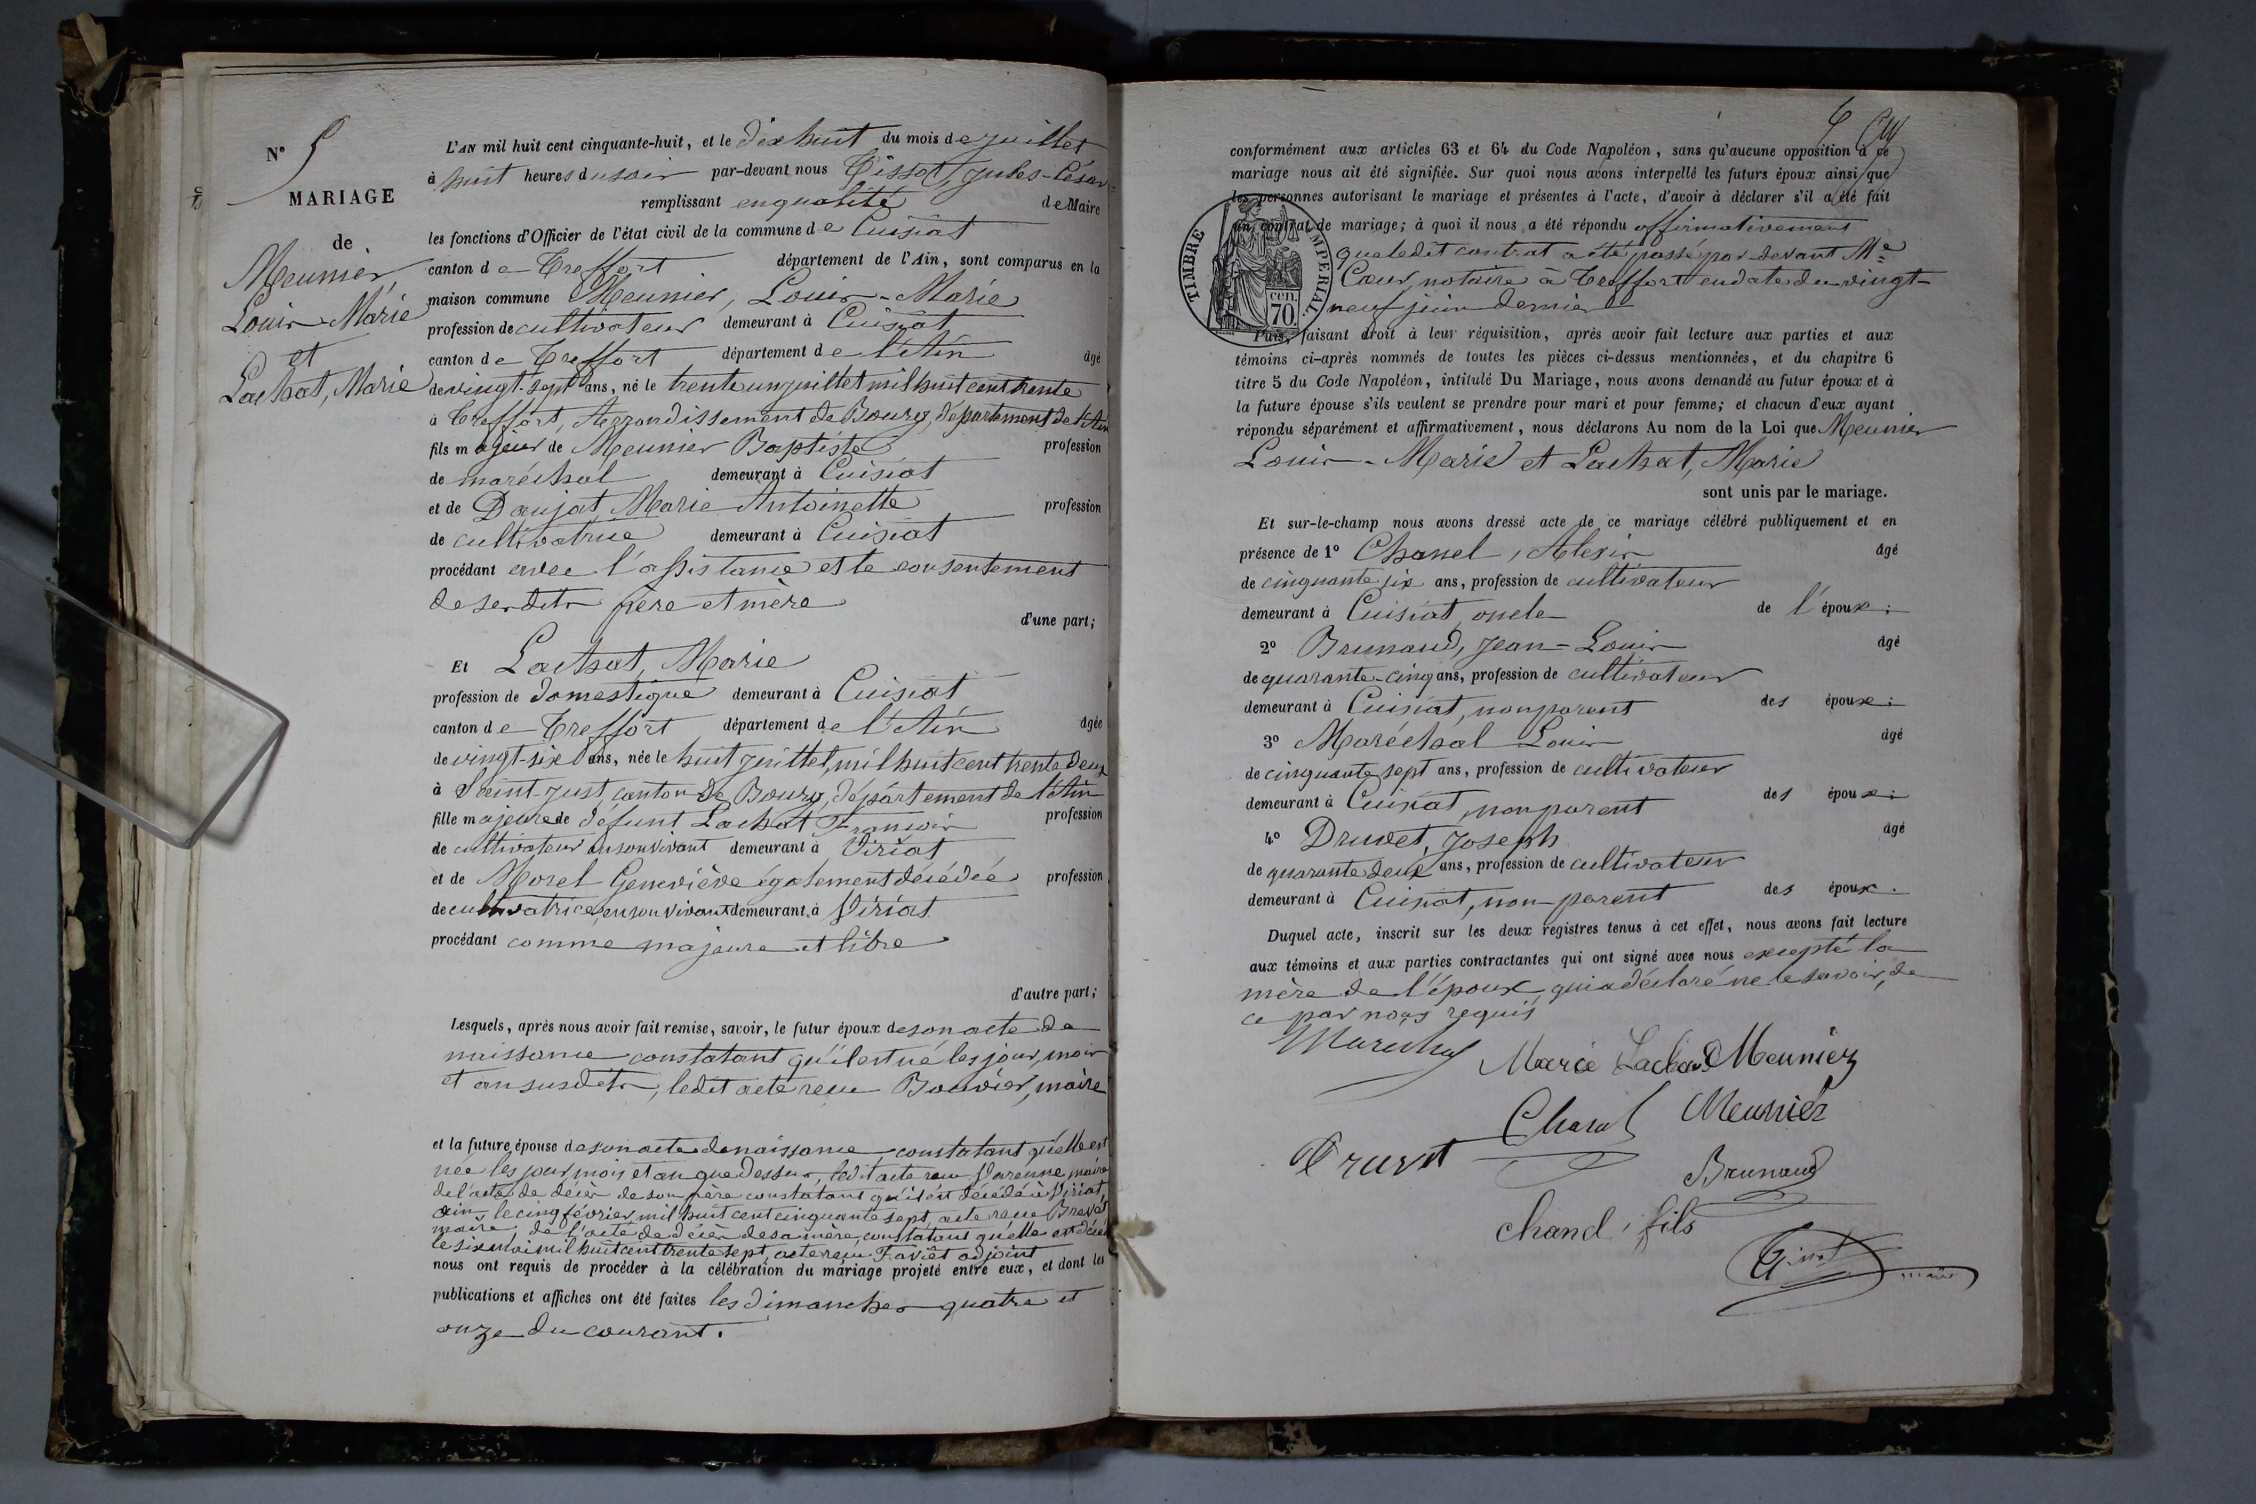 N° 5
MARIAGE
de
Meunier,
Louis-Marie
et
Lachat, Marie
L'AN mil huit cent cinquante-huit, et le dix huit du mois de juillet
à huit heures du soir par-devant nous Tissot, Jules-César
remplissant en qualité de Maire
les fonctions d'Officier de l'état civil de la commune de Cuisiat
canton de Treffort département de l'Ain, sont comparus en la
maison commune Meunier, Louis-Marie
profession de cultivateur demeurant à Cuisiat
canton de Treffort département de l'Ain âgé
de vingt-sept ans, né le trente un juillet mil huit cent trente
à Treffort, Arrondissement de Bourg, département de l'Ain
fils majeur de Meunier Baptiste profession
de maréchal demeurant à Cuisiat
et de Daujat, Marie Antoinette profession
de cultivatrice demeurant à Cuisiat
procédant avec l'assistance et le consentement
de ses dits père et mère
d'une part;
Et Lachat, Marie
profession de domestique demeurant à Cuisiat
canton de Treffort département de l'Ain âgée
de vingt-six ans, née le huit juillet, mil huit cent trente deux
à Saint-Just, canton de Bourg, département de l'Ain
fille majeure de défunt Lachat François profession
de cultivateur en son vivant demeurant à Viriat
et de Morel Geneviève également décédée profession
de cultivatrice en son vivant demeurant à Viriat
procédant comme majeure et libre
d'autre part;
Lesquels, après nous avoir fait remise, savoir, le futur époux de son acte de
naissance constatant qu'il est né les jour, mois
et an susdits, ledit acte reçu Bouvier, maire
et la future épouse de son acte de naissance constatant qu'elle est
née les jour, mois et an que dessus, ledit acte reçu Varenne, maire
de l'acte de décès de son père constatant qu'il est décédé à Viriat,
Ain le cinq février mil huit cent cinquante sept, acte reçu Brevet
maire, de l'acte de décès de sa mère, constatant qu'elle est décédée
le six mai mil huit cent trente sept, acte reçu Faviet adjoint
nous ont requis de procéder à la célébration du mariage projeté entre eux, et dont les
publications et affiches ont été faites les dimanches quatre et
onze du courant.
conformément aux articles 63 et 64 du Code Napoléon, sans qu'aucune opposition à ce
mariage nous ait été signifiée. Sur quoi nous avons interpellé les futurs époux ainsi que
les personnes autorisant le mariage et présentes à l'acte, d'avoir à déclarer s'il a été fait
un contrat de mariage; à quoi il nous a été répondu affirmativement
que ledit contrat a été passé par devant Me
Cœur, notaire à Treffort en date du vingt-
neuf juin dernier
TIMBRE IMPERIAL
cen.
70
Puis, faisant droit à leur réquisition, après avoir fait lecture aux parties et aux
témoins ci-après nommés de toutes les pièces ci-dessus mentionnées, et du chapitre 6
titre 5 du Code Napoléon, intitulé Du Mariage, nous avons demandé au futur époux et à
la future épouse s'ils veulent se prendre pour mari et pour femme; et chacun d'eux ayant
répondu séparément et affirmativement, nous déclarons Au nom de la Loi que Meunier
Louis-Marie et Lachat, Marie
sont unis par le mariage.
Et sur-le-champ nous avons dressé acte de ce mariage célébré publiquement et en
présence de 1° Chanel, Alexis âgé
de cinquante six ans, profession de cultivateur
demeurant à Cuisiat, oncle de l'époux;
2° Brunaud, Jean-Louis âgé
de quarante-cinq ans, profession de cultivateur
demeurant à Cuisiat, non parent des époux;
3° Maréchal Louis âgé
de cinquante sept ans, profession de cultivateur
demeurant à Cuisiat, non parent des époux;
4° Druvet, Joseph âgé
de quarante deux ans, profession de cultivateur
demeurant à Cuisiat, non-parent des époux.
Duquel acte, inscrit sur les deux registres tenus à cet effet, nous avons fait lecture
aux témoins et aux parties contractantes qui ont signé avec nous excepté la
mère de l'époux, qui a déclaré ne le savoir, de
ce par nous requis
Marechal
Marie Lachat Meunier
Chanel Meunier
Druvet
Brunaud
Chanel, fils
Tissot maire